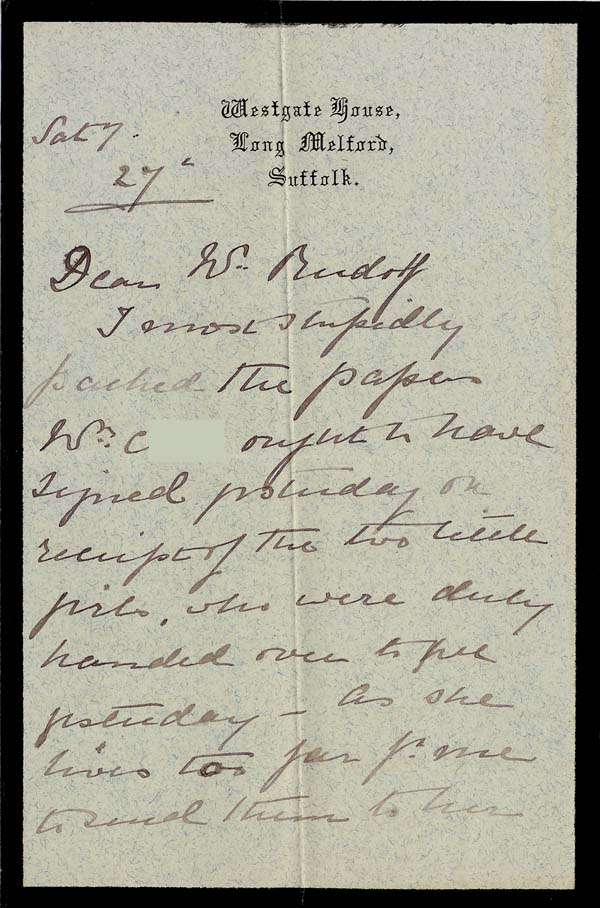 Westgate House,
Long Melford,
Suffolk.
Saty.
27th
Dear Mr. Rudolf
I most stupidly
packed the papers
Mrs C ought to have
signed yesterday on
receipt of the two little
girls, who were duly
handed over to her
yesterday – As she
lives too far fr me
to send them to her